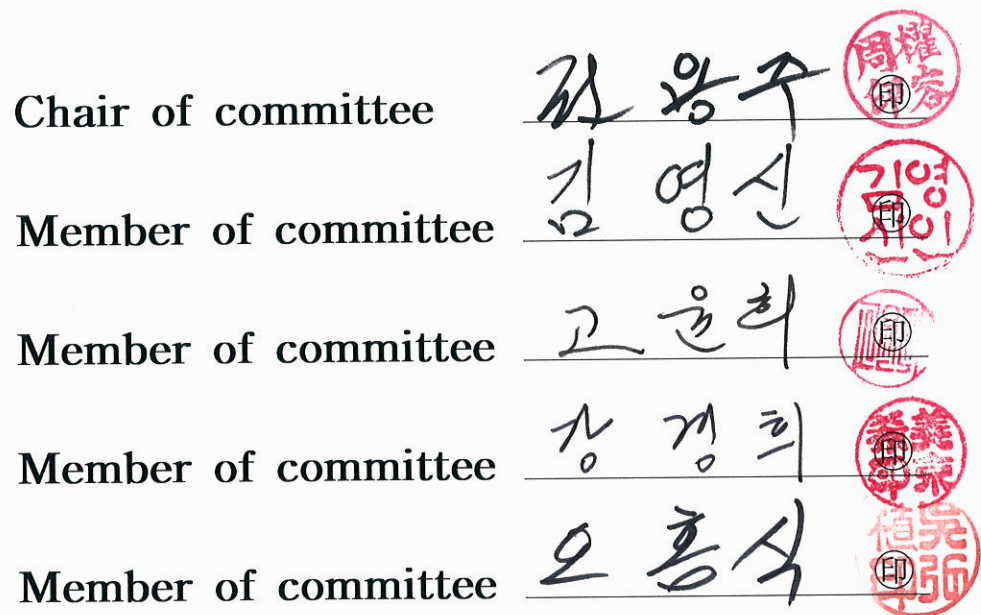 Chair of committee 권 용 주 印
Member of committee 김 영 신 印
Member of committee 고 윤 희 印
Member of committee 강 경 희 印
Member of committee 오 홍 식 印